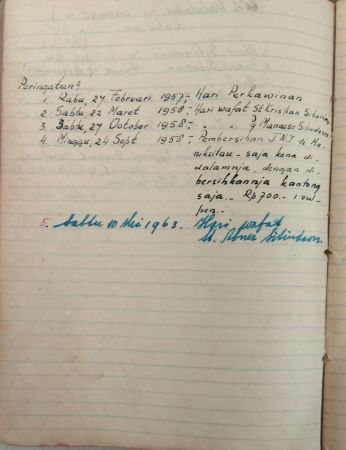 Peringatan2
1. Rabu, 27 Februari 1957,- Hari Perkawinan
2. Sabtu, 22 Maret 1958 - Hari wafat St Kristian
3. Sabtu, 27 October 1958,- " " g Manause Sitindaon
4. Minggu, 24 Sept 1958,- Pembersihan TNI di Ma-
nikulau - saja kena di-
dalamnja, dengan di-
bersihkannja kantong
saja.- Rp 700.- 1 vul-
pen.-
5. Sabtu 10 Mei 1963. Hari wafat
St. Abner Sitindaon